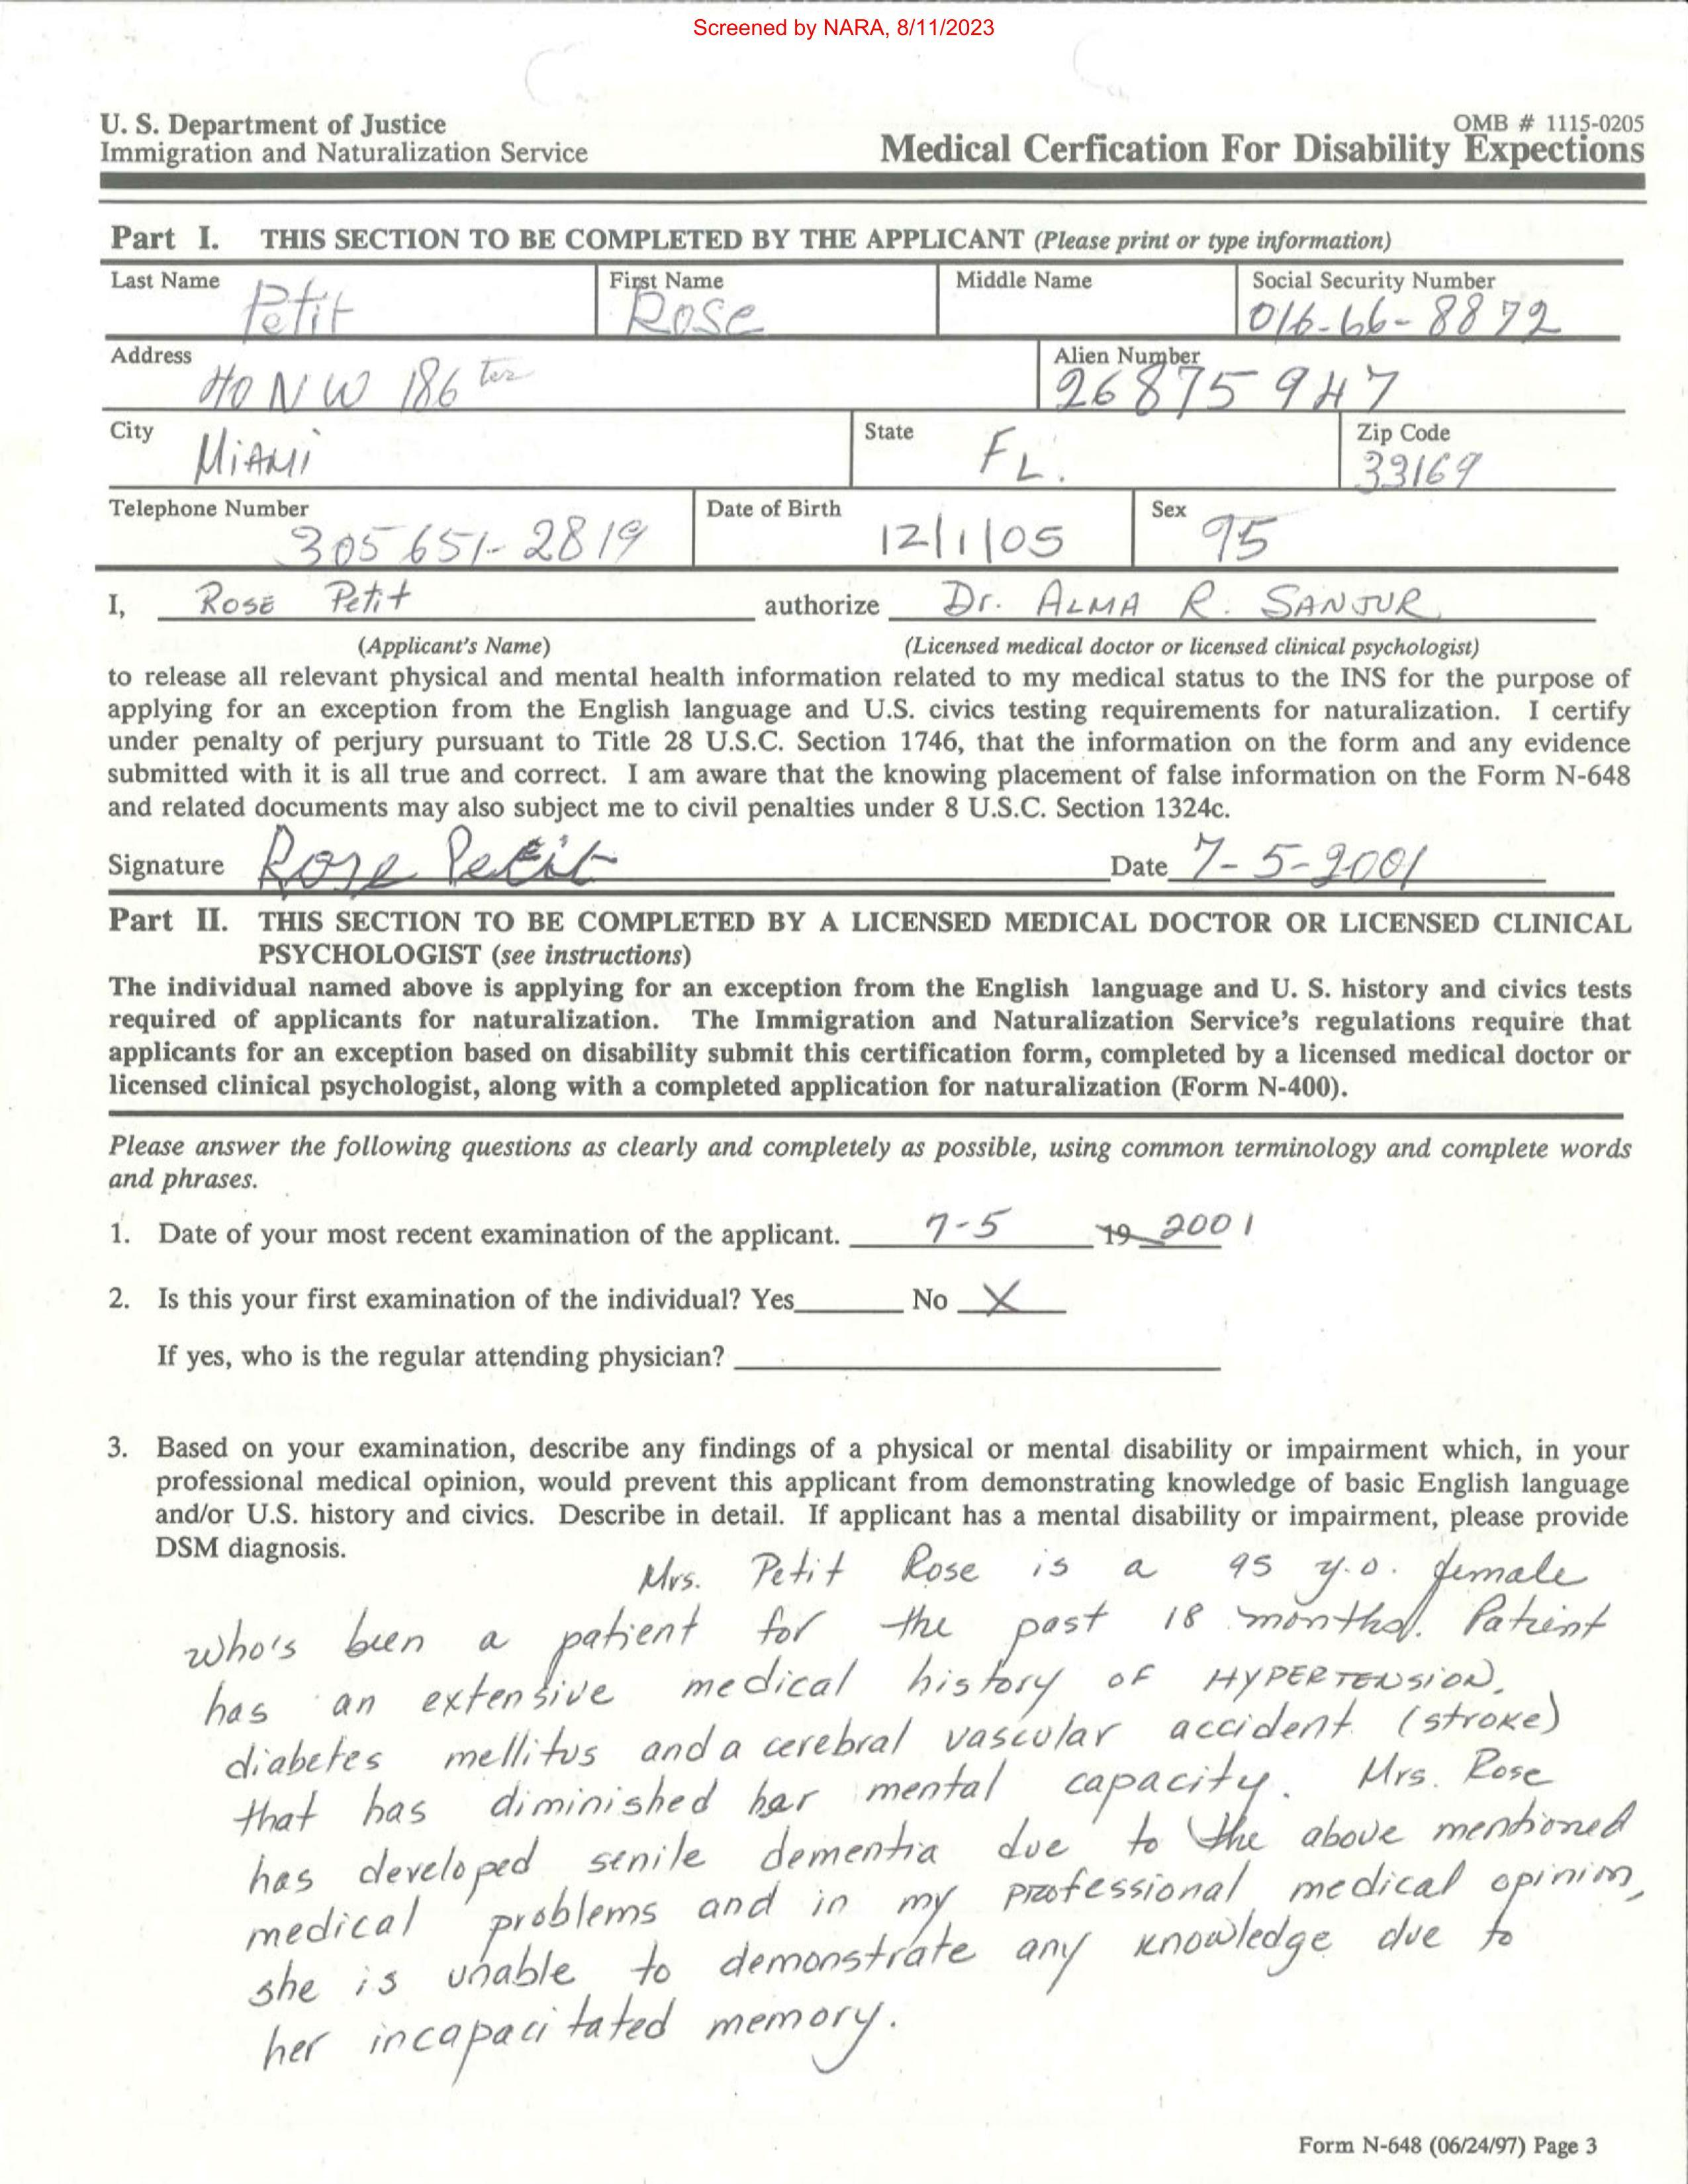 Screened by NARA, 8/11/2023
U. S. Department of Justice
OMB # 1115-0205
Immigration and Naturalization Service
Medical Cerfication For Disability Expections
Part I. THIS SECTION TO BE COMPLETED BY THE APPLICANT (Please print or type information)
Last Name Petit First Name Rose Middle Name Social Security Number 016-66-8872
Address NW 186 ter Alien Number 26875947
City MiAMi State FL. Zip Code 33169
Telephone Number 305 651-2819 Date of Birth 12/1/05 Sex 95
I, ROSE Petit authorize Dr. ALMA R. SANJUR
(Applicant's Name) (Licensed medical doctor or licensed clinical psychologist)
to release all relevant physical and mental health information related to my medical status to the INS for the purpose of
applying for an exception from the English language and U.S. civics testing requirements for naturalization. I certify
under penalty of perjury pursuant to Title 28 U.S.C. Section 1746, that the information on the form and any evidence
submitted with it is all true and correct. I am aware that the knowing placement of false information on the Form N-648
and related documents may also subject me to civil penalties under 8 U.S.C. Section 1324c.
Signature Rose Petit Date 7-5-2001
Part II. THIS SECTION TO BE COMPLETED BY A LICENSED MEDICAL DOCTOR OR LICENSED CLINICAL
PSYCHOLOGIST (see instructions)
The individual named above is applying for an exception from the English language and U. S. history and civics tests
required of applicants for naturalization. The Immigration and Naturalization Service's regulations require that
applicants for an exception based on disability submit this certification form, completed by a licensed medical doctor or
licensed clinical psychologist, along with a completed application for naturalization (Form N-400).
Please answer the following questions as clearly and completely as possible, using common terminology and complete words
and phrases.
1. Date of your most recent examination of the applicant. 7-5 19 2001
2. Is this your first examination of the individual? Yes No X
If yes, who is the regular attending physician?
3. Based on your examination, describe any findings of a physical or mental disability or impairment which, in your
professional medical opinion, would prevent this applicant from demonstrating knowledge of basic English language
and/or U.S. history and civics. Describe in detail. If applicant has a mental disability or impairment, please provide
DSM diagnosis.
Mrs. Petit Rose is a 95 y.o. female
who's been a patient for the past 18 months. Patient
has an extensive medical history OF HYPERTENSION,
diabetes mellitus and a cerebral vascular accident (stroke)
that has diminished her mental capacity. Mrs. Rose
has developed senile dementia due to the above mentioned
medical problems and in my professional medical opinion,
she is unable to demonstrate any knowledge due to
her incapacitated memory.
Form N-648 (06/24/97) Page 3